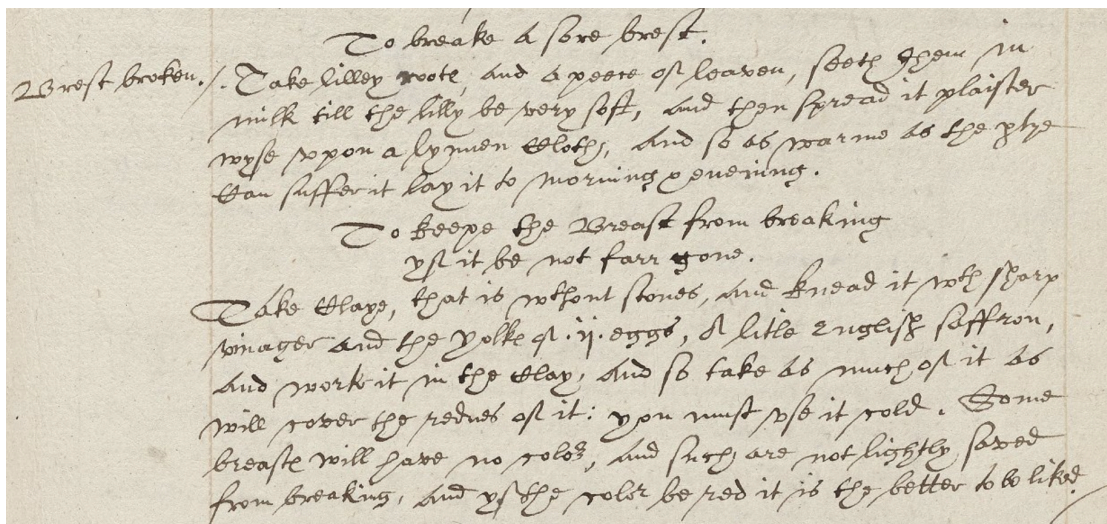 To breake a sore brest.
Brest broken. /. Take lilley roote, and a peece of leaven, seeth them in
milk till the lilly be very soft, and then spread it plaister
wyse vpon a lynnen Cloth, and so as warme as the ptye
Can suffer it lay it to morning & evening.
To keepe the Breast from breaking
yf it be not farr gone.
Take Claye, that is wthout stones, and knead it wth sharp
vinager and the yolke of .ij. eggs, A litle English saffron,
and work it in the Clay, and so take as much of it as
will cover the rednes of it: you must vse it cold. Some
breaste will have no color, and such are not lightly saved
from breaking, and yf the color be red it is the better to be liked.